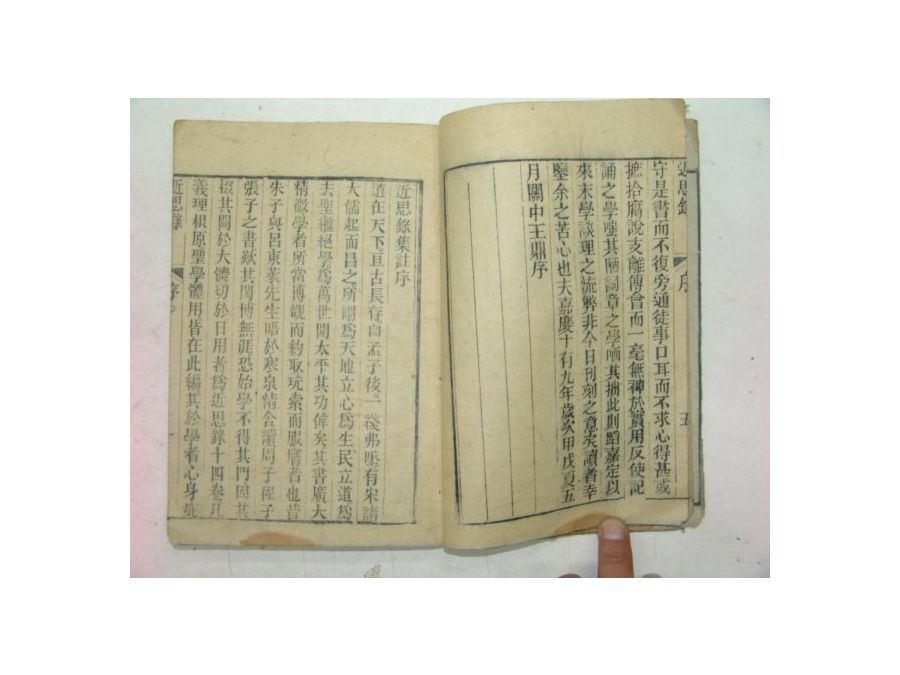 近思錄 序 五
守是書而不復旁通徒事口耳而不求心得甚或
摭拾腐說支離傅會而一毫無裨於實用反使記
誦之學嗤其陋詞章之學哂其拙此則蹈嘉定以
來末學談理之流弊非今日刊刻之意矣讀者幸
鑒余之苦心也夫嘉慶十有九年歲次甲戌夏五
月關中王鼎序
近思錄集註序
道在天下亘古長存自孟子後一綫弗墜有宋諸
大儒起而昌之所謂為天地立心為生民立道為
去聖繼絕學為萬世開太平其功偉矣其書廣大
精微學者所當博觀而約取玩索而服膺者也昔
朱子與呂東萊先生晤於寒泉精舍讀周子程子
張子之書歎其閎博無涯恐始學不得其門因共
掇其關於大體切於日用者為近思錄十四卷凡
義理根原聖學體用皆在此編其於學者心身
近思錄 序